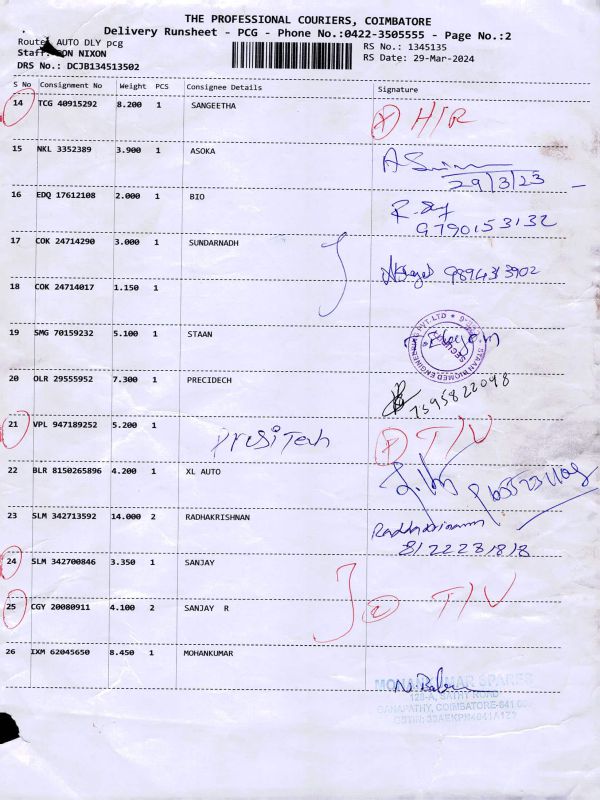 THE PROFESSIONAL COURIERS, COIMBATORE
Delivery Runsheet - PCG - Phone No.:0422-3505555 - Page No.:2
Route: AUTO DLY pcg RS No.: 1345135
Staff: DON NIXON RS Date: 29-Mar-2024
DRS No.: DCJB134513502
S No Consignment No Weight PCS Consignee Details Signature
14 TCG 40915292 8.200 1 SANGEETHA H/R
15 NKL 3352389 3.900 1 ASOKA
29/3/23
16 EDQ 17612108 2.000 1 BIO
9790153132
17 COK 24714290 3.000 1 SUNDARNADH
9894313902
18 COK 24714017 1.150 1
19 SMG 70159232 5.100 1 STAAN
STAAN BIOMED ENGINEERING PVT.LTD
20 OLR 29555952 7.300 1 PRECIDECH
7595822098
21 VPL 947189252 5.200 1 PresiTech T/V
22 BLR 8150265896 4.200 1 XL AUTO
23 SLM 342713592 14.000 2 RADHAKRISHNAN
8122231818
24 SLM 342700846 3.350 1 SANJAY
25 CGY 20080911 4.100 2 SANJAY R 2 T/V
26 IXM 62045650 8.450 1 MOHANKUMAR
MOHANKUMAR SPARES
GANAPATHY, COIMBATORE-641